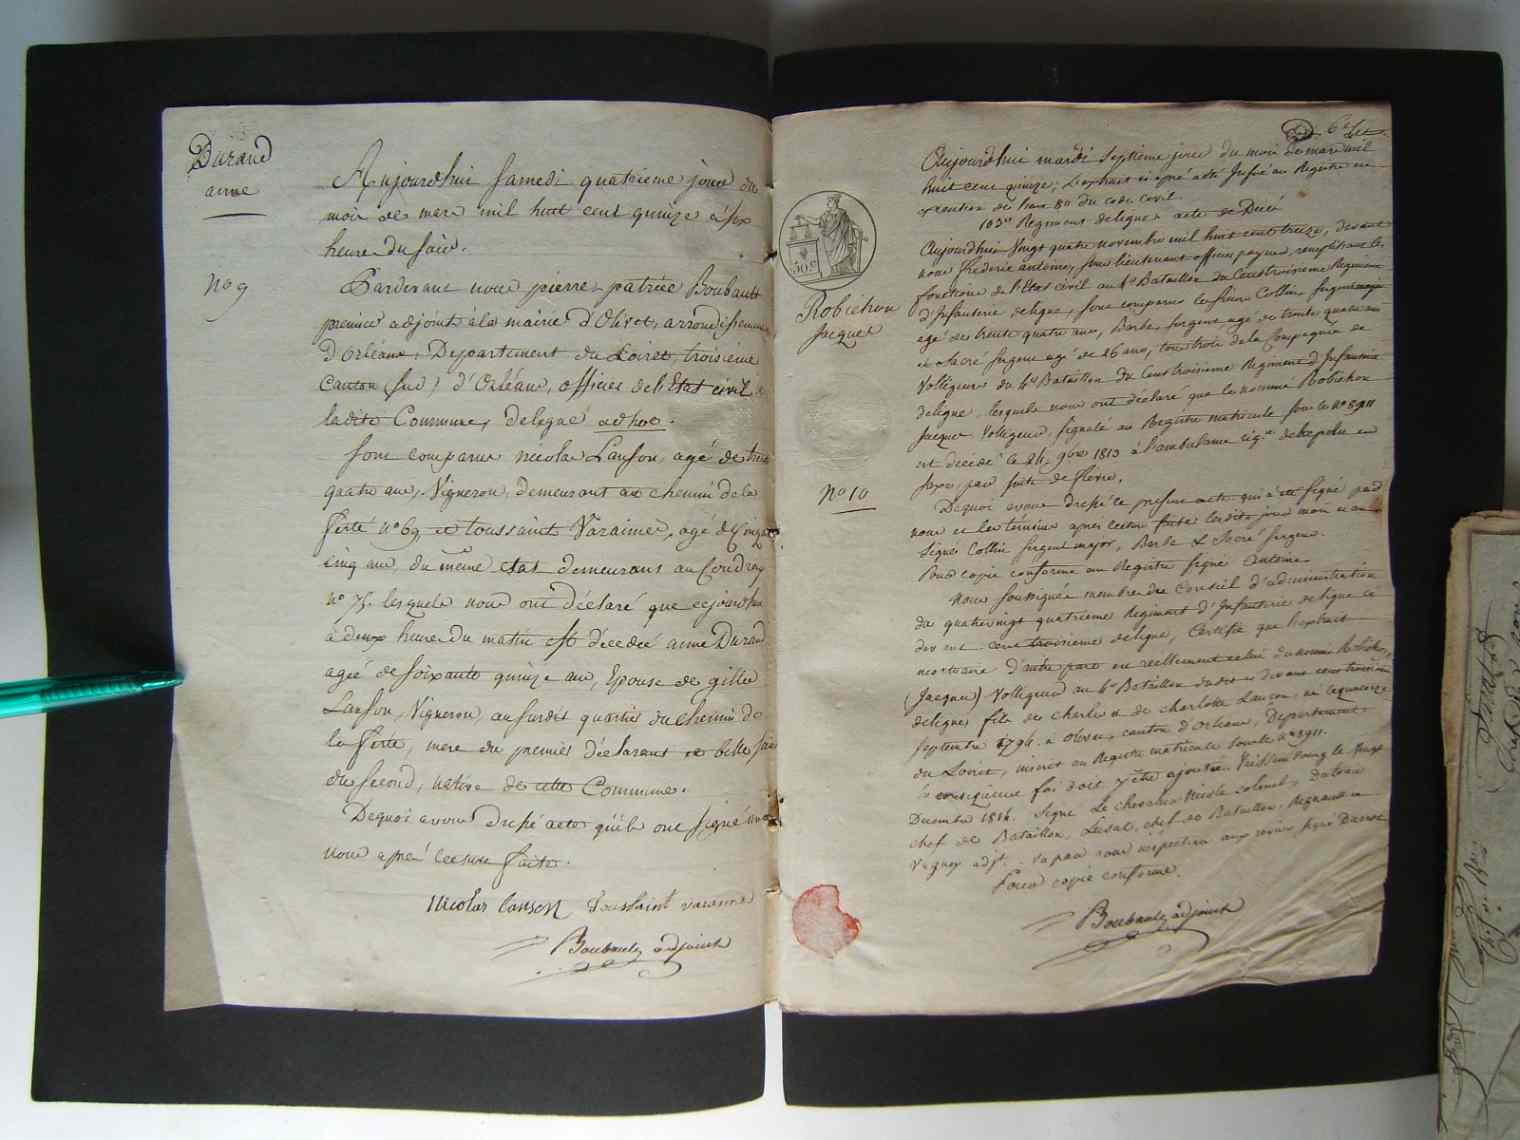 Durand
anne
No 9
Aujourdhui Samedi quatrieme jour du
mois de mars mil huit cent quinze à six
heure du soir.
Pardevant nous pierre patrice Boubault
premier adjoint à la mairie d'Olivet, arrondissement
D'Orléans, Département du Loiret, troisième
Canton (sud) d'Orléans, officier de l'Etat civil de
ladite Commune, delegué ad hoc.
Sont comparus nicolas Lanson, agé de trente
quatre ans, Vigneron, demeurant au chemin de la
Ferté no 69, et toussaint Varanne, agé de Cinquante
cinq ans, du même etat demeurant au Coudray
no 75. lesquels nous ont déclaré que cejourdhui
à deux heure du matin est décédée anne Durand
agée de soixante quinze ans, Epouse de gilles
Lanson, Vigneron, au susdit quartier du chemin de
la Ferté, mere du premier déclarant et belle
du second, native de cette Commune.
Dequoi avons dressé acte qu'ils ont signé avec
nous après lecture faite.
Nicolas Lanson Toussaint varanne
Boubault adjoint
6e
50 c
Robichon
Jacques
No 10
Aujourdhui mardi Septième jour du mois de mars mil
huit cent quinze, L'extrait ci après a été Inséré au Registre en
execution de du code civil.
103e Regiment de ligne acte de Décé
Aujourdhui Vingt quatre novembre mil huit cent treize, devant
nous frederic antoine, sous lieutenant officier payeur, remplissant les
fonctions de l'Etat civil au 4e Bataillon du Cent troisieme Regiment
d'Infanterie de ligne, sont comparus le sieur Collin, sergent major
agé de trente quatre ans, Barbe, sergent agé de trente quatre ans
et Sacré sergent agé de 26 ans, tous trois de la Compagnie de
Voltigeurs du 4e Bataillon du Cent troisieme Regiment d'Infanterie
de ligne, lesquels nous ont déclaré que le nommé Robichon
Jacques Voltigeur, signalé au Registre matricule sous le no 8911
est décédé le 24 9bre 1813 à l'ambulance en
Saxe, par suite de fièvre.
Dequoi avons dressé le présent acte qui a été signé par
nous et les témoins après lecture faite lesdits jour mois et an
Signés Collin sergent major, Barbe & Sacré sergens.
Pour copie conforme au Registre signé antoine
Nous soussignés membres du Conseil d'administration
du quatrevingt quatrieme Regiment d'Infanterie de ligne ci
devant cent troisieme de ligne, Certifie que l'extrait
mortuaire d'autre part est réellement celui du nommé Robichon
(Jacques) Voltigeur au 4e Bataillon du ci devant cent troisieme
de ligne, fils de Charles & de charlotte Lançon, né le quatorze
Septembre 1794. à Olivet, canton d'Orléans, Département
du Loiret, inscrit au Registre matricule sous le no 8911.
En conséquence foi doit y être ajoutée. le Vingt
Decembre 1814. Signé Le chevalier colonel,
chef de Bataillon, chef de Bataillon,
Vu par nous inspecteur aux revues, signé
Pour copie conforme.
Boubault adjoint